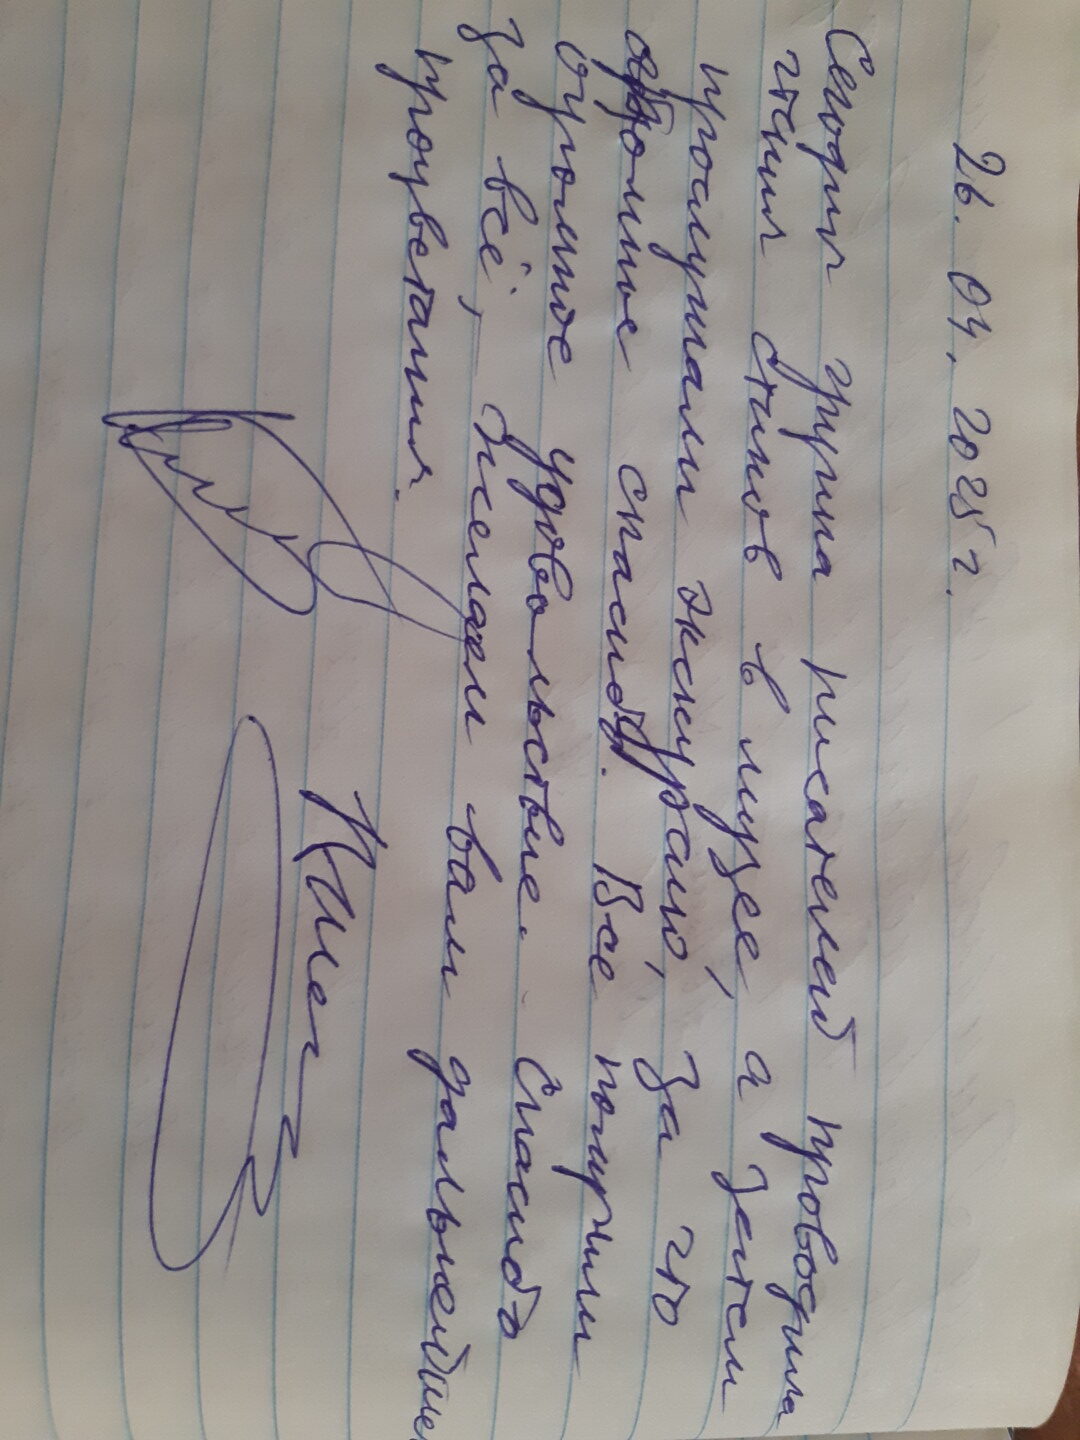 26.04.2025 г.
Сегодня группа писателей проводила
чтения стихов в музее, а затем
прослушали экскурсию, за что
огромные спасибо. Все получили
огромное удовольствие. Спасибо
за всё, желаем вам дальнейшего
процветания.